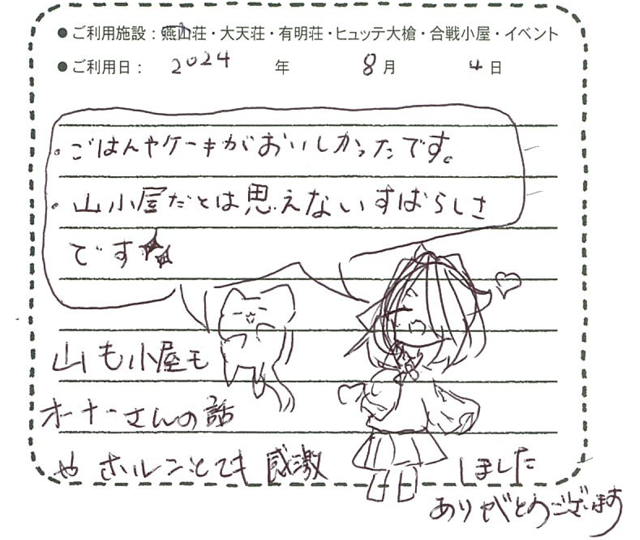 ●ご利用施設：燕山荘・大天荘・有明荘・ヒュッテ大槍・合戦小屋・イベント
●ご利用日： 2024 年 8月 4日
・ごはんやケーキがおいしかったです。
・山小屋だとは思えないすばらしさ
です★★
山も小屋も
オーナーさんの話
や ホルンとても 感激 しました
ありがとうございます